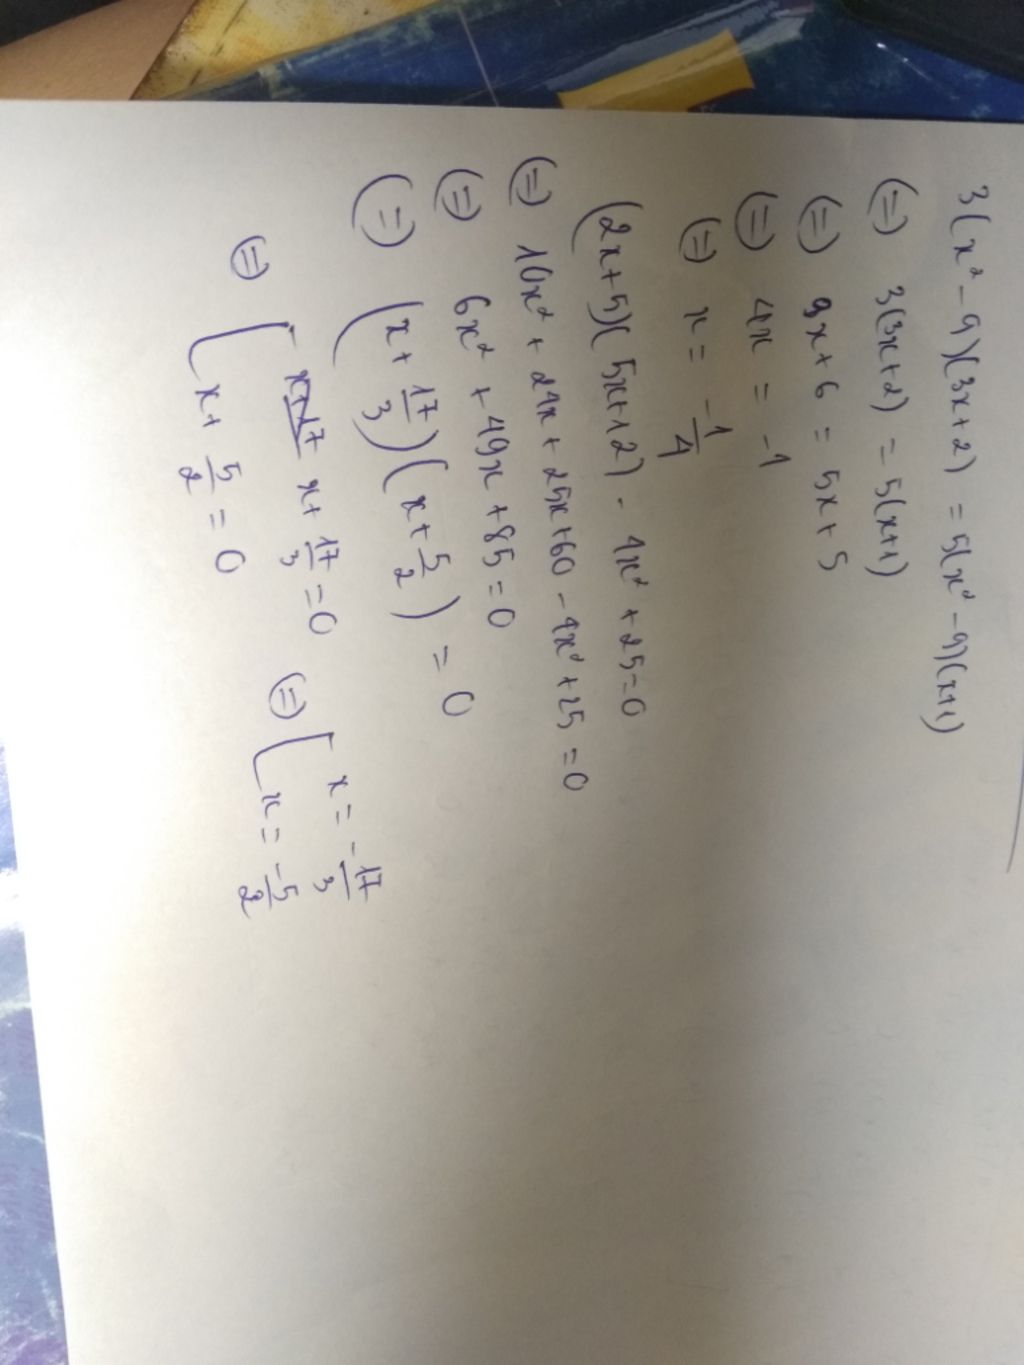 3(x² - 9)(3x+2) = 5(x² - 9)(x+1)
(=) 3(3x+2) = 5(x+1)
(=) 9x+6 = 5x+5
(=) 4x = -1
(=) x = -1/4
(2x+5)(5x+12) - 4x² + 25 = 0
(=) 10x² + 24x + 25x+60 - 4x² + 25 = 0
(=) 6x² + 49x + 85 = 0
(=) (x + 17/3)(x + 5/2) = 0
(=) [ x + 17/3 = 0 (=) [ x = -17/3
x + 5/2 = 0 x = -5/2